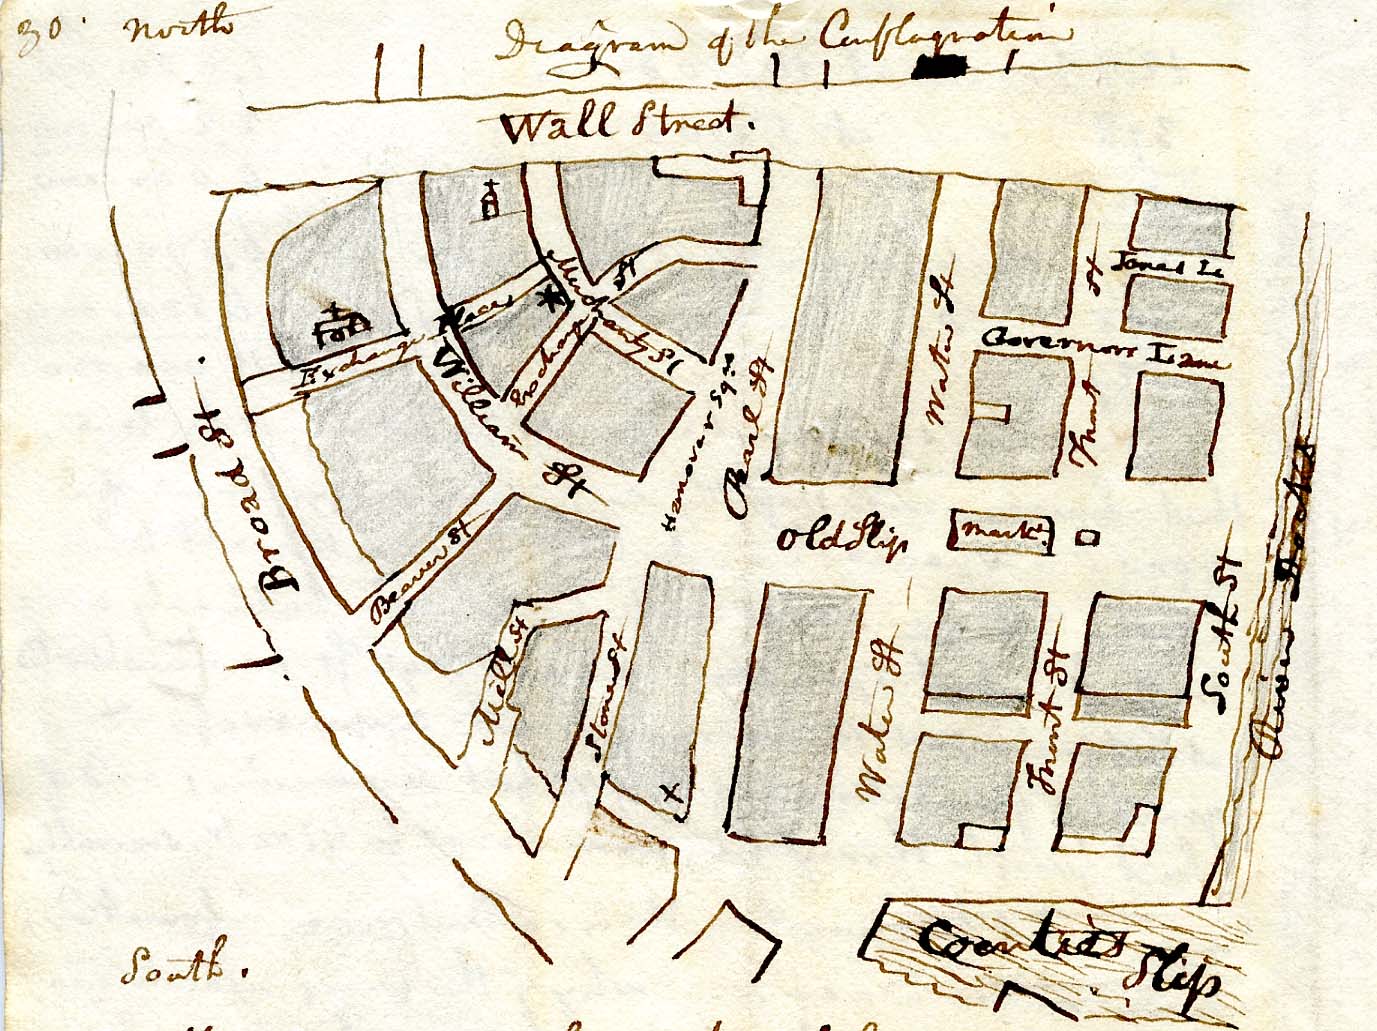 30 North
Diagram of the Conflagration
Wall Street.
Exchange Place
Merchants St
Exchange St
William St
Hanover Sqre
Pearl St
Water St
St
Jones Le
Governors Lane
Front
Broad St
Beaver St
Old Slip
Markt.
Mill St
Stone St
Water St
Front St
South St
River
Coenties Slip
South.